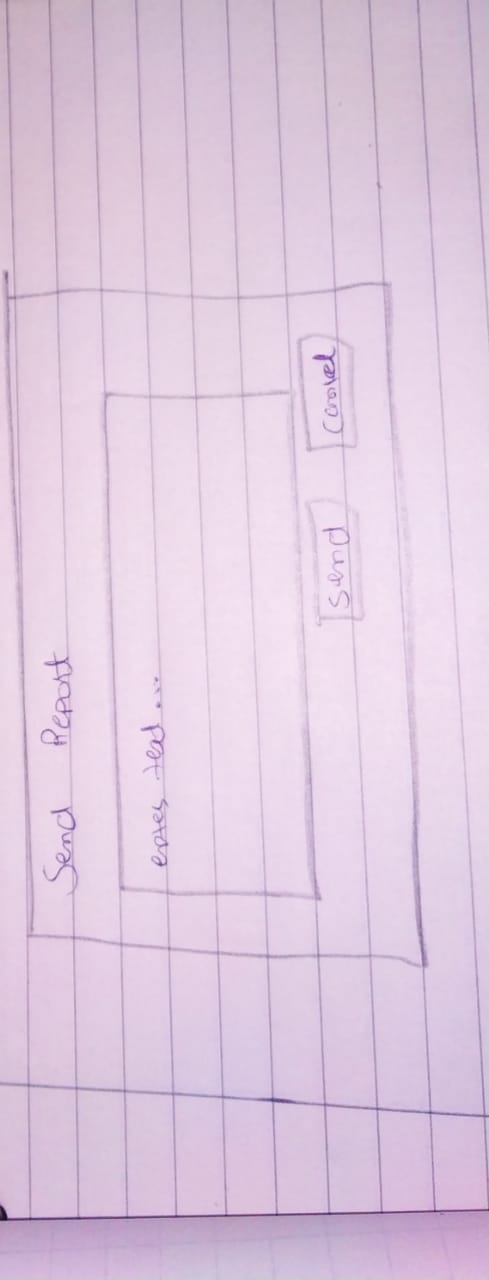 Send Report
enter text...
Send Cancel